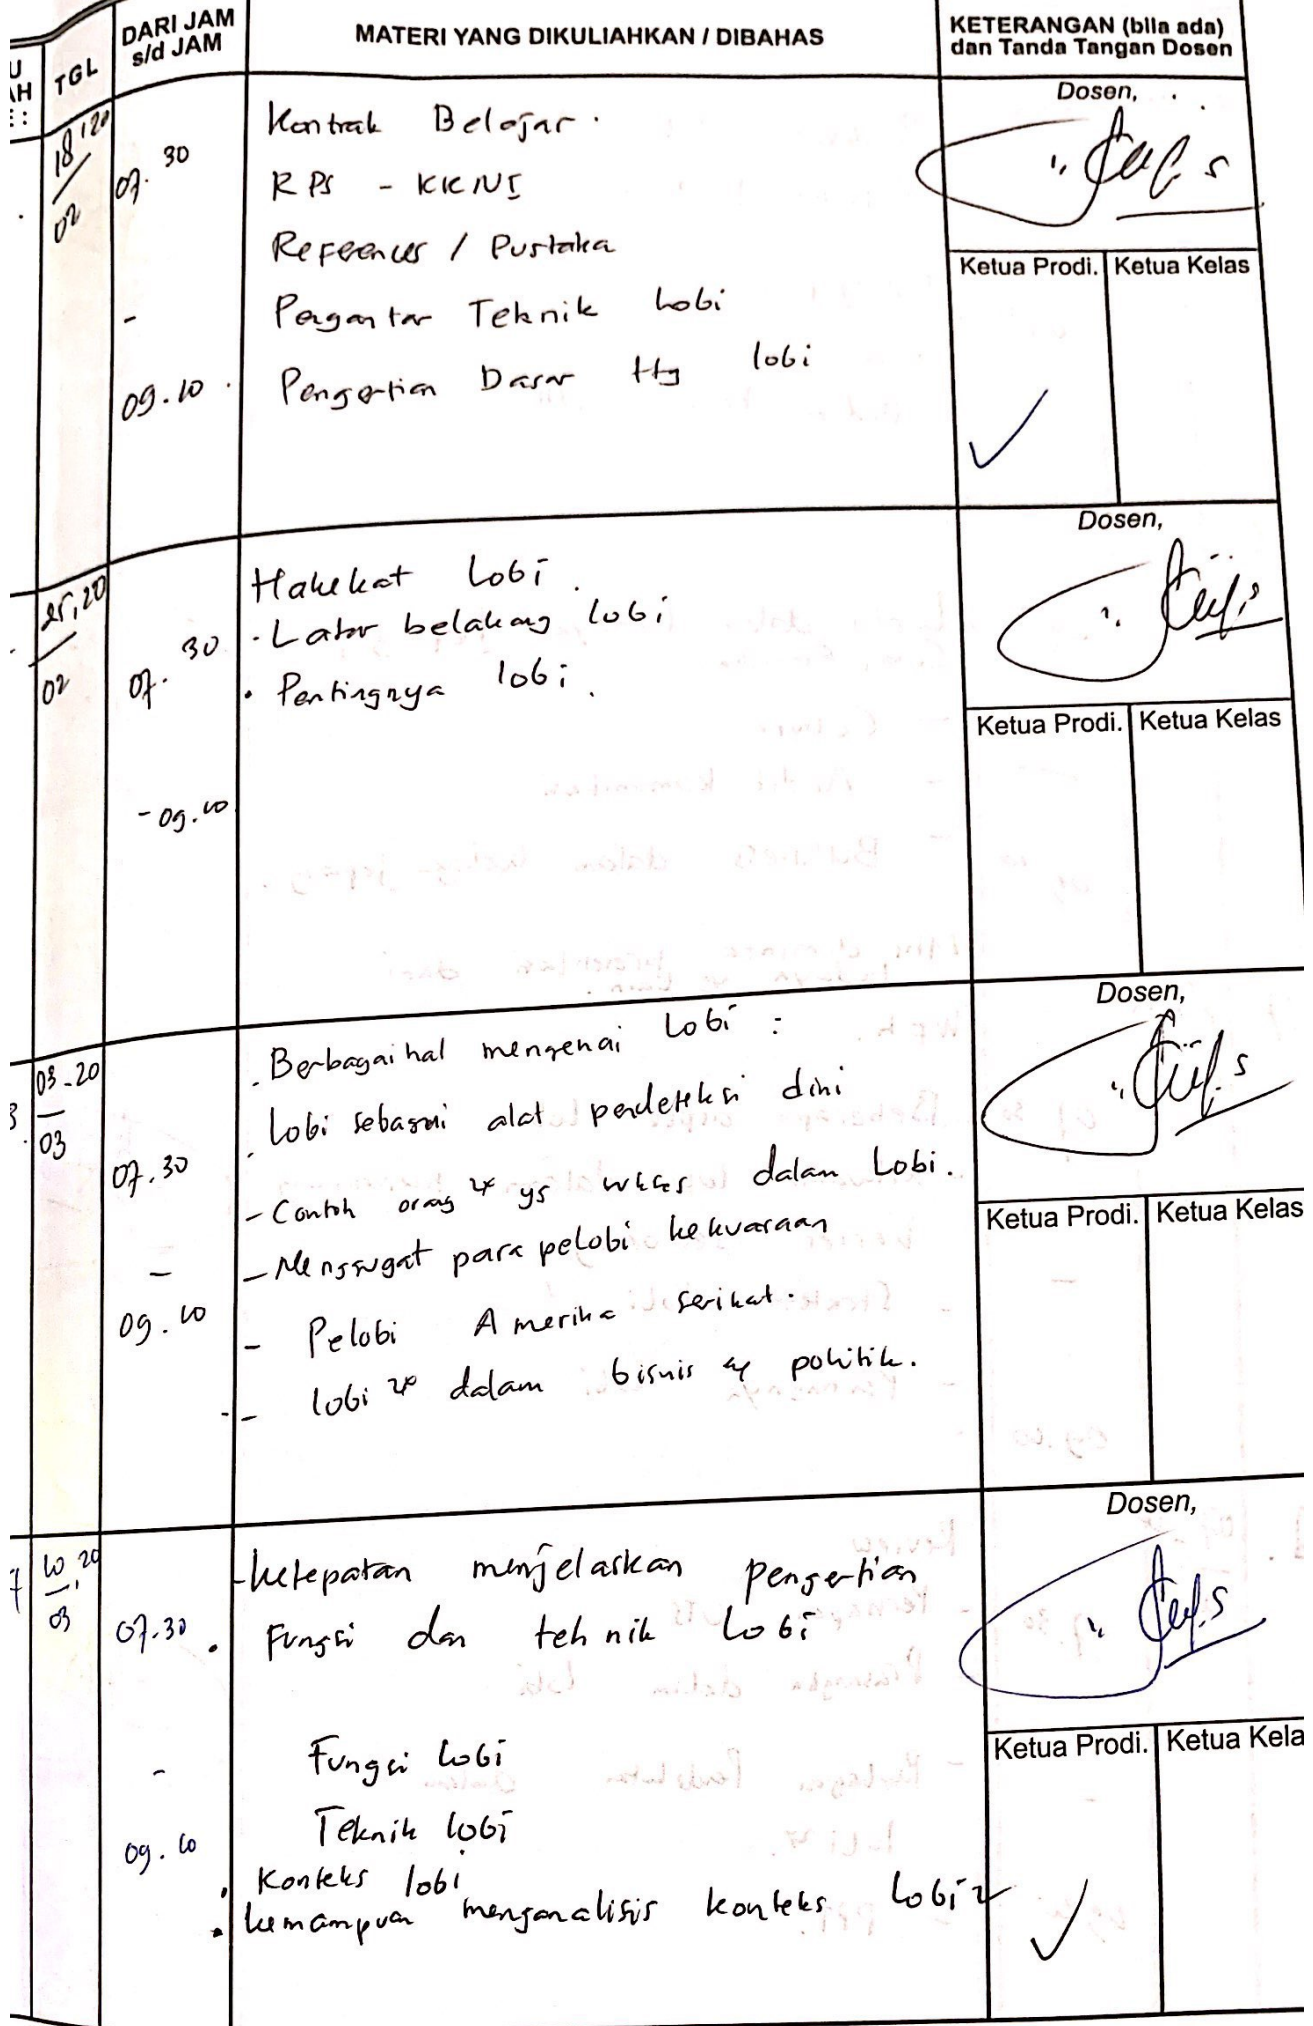 TGL
DARI JAM
s/d JAM
MATERI YANG DIKULIAHKAN / DIBAHAS
KETERANGAN (bila ada)
dan Tanda Tangan Dosen
18,'20
02
07.30
-
09.10
Kontrak Belajar.
RPS - KKNI
References / Pustaka
Pengantar Teknik Lobi
Pengertian Dasar ttg lobi
Dosen,
Ketua Prodi. Ketua Kelas
25,'20
02
07.30
- 09.10
Hakekat Lobi.
. Latar belakang lobi
. Pentingnya lobi.
Dosen,
Ketua Prodi. Ketua Kelas
03-20
03
07.30
-
09.10
. Berbagai hal mengenai Lobi :
. Lobi sebagai alat pendeteksi dini
- Contoh orang yg dalam Lobi.
- Menggugat para pelobi kekuasaan
- Pelobi Amerika Serikat.
- lobi2 dalam bisnis & politik.
Dosen,
Ketua Prodi. Ketua Kelas
10,'20
03
07.30
-
09.10
- ketepatan menjelaskan pengertian
. Fungsi dan tehnik Lobi
Fungsi Lobi
Teknik lobi
. Konteks lobi
. kemampuan menganalisis konteks Lobi2
Dosen,
Ketua Prodi. Ketua Kela